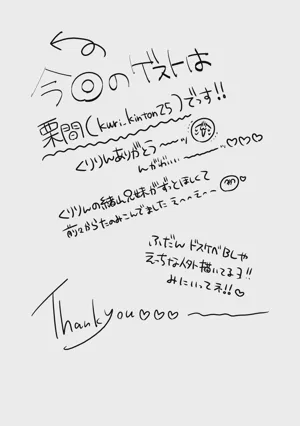 今回のゲストは
栗間(kuri.kinton25)でっす!!
くりりんありがとう〜〜ッ
んがわいい〜〜ッ♡♡♡
くりりんの緒山兄妹がずっとほしくて
前々からたのみこんでました え〜へえ〜〜
ふだん ドスケベBLや
えっちな人外描いてるヨ!!
みにいってネ!!♡
Thank you♡♡♡